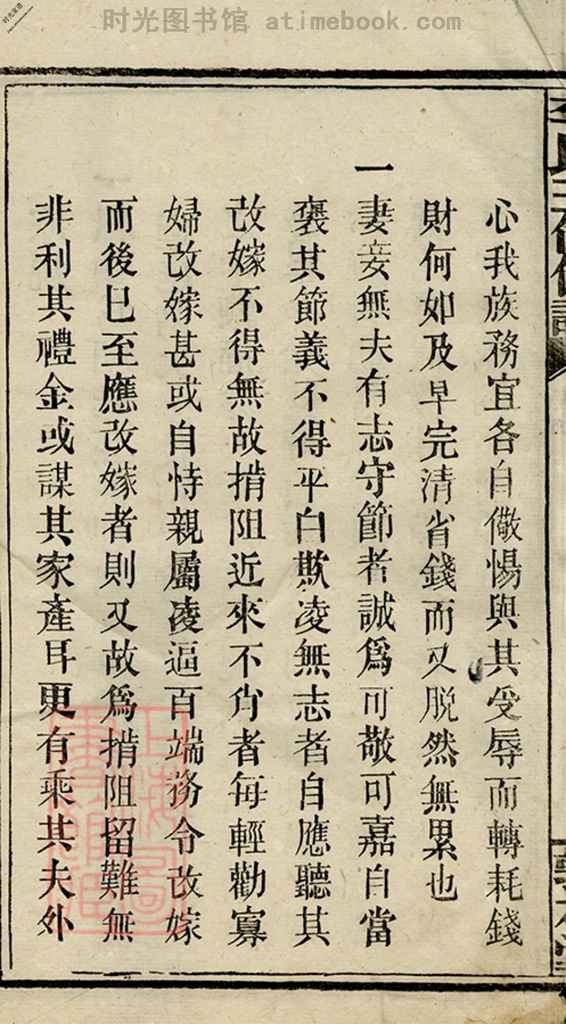 时光图书馆 atimebook.com
心我族務宜各自儆惕與其受辱而轉耗錢
財何如及早完清省錢而又脱然無累也
一妻妾無夫有志守節者誠爲可敬可嘉自當
褒其節義不得平白欺凌無志者自應聽其
改嫁不得無故揹阻近來不肖者每輕勸寡
婦改嫁甚或自恃親屬凌逼百端務令改嫁
而後已至應改嫁者則又故爲揹阻留難無
非利其禮金或謀其家產耳更有乘其夫外